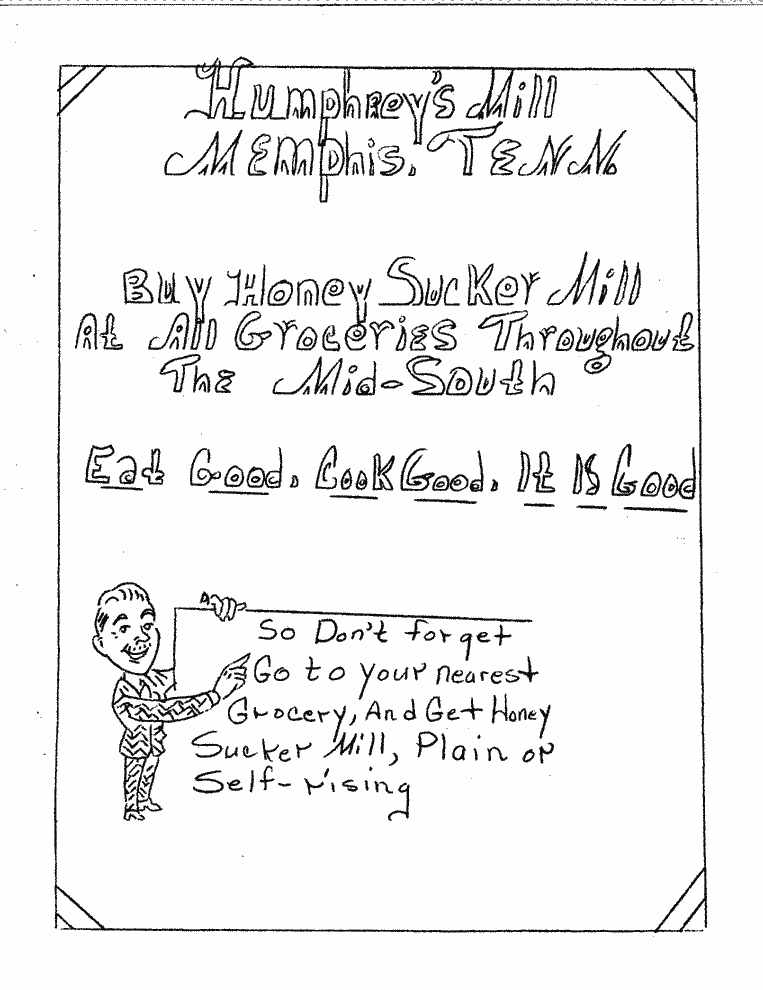 Humphrey's Mill
Memphis, TENN.
Buy Honey Sucker Mill
At All Groceries Throughout
The Mid-South
Eat Good. Cook Good. It Is Good
So Don't forget
Go to your nearest
Grocery, And Get Honey
Sucker Mill, Plain or
Self-rising